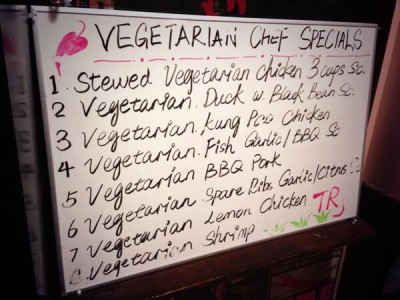 VEGETARIAN Chef SPECIALS
1. Stewed Vegetarian chicken 3 cups Sc.
2 Vegetarian. Duck w. Black Bean Sc.
3 Vegetarian. Kung Pao Chicken
4 Vegetarian. Fish Garlic/BBQ Sc
5 Vegetarian BBQ Pork
6 Vegetarian Spare Ribs Garlic/Citrus
7 Vegetarian Lemon Chicken TR
8. Vegetarian Shrimp